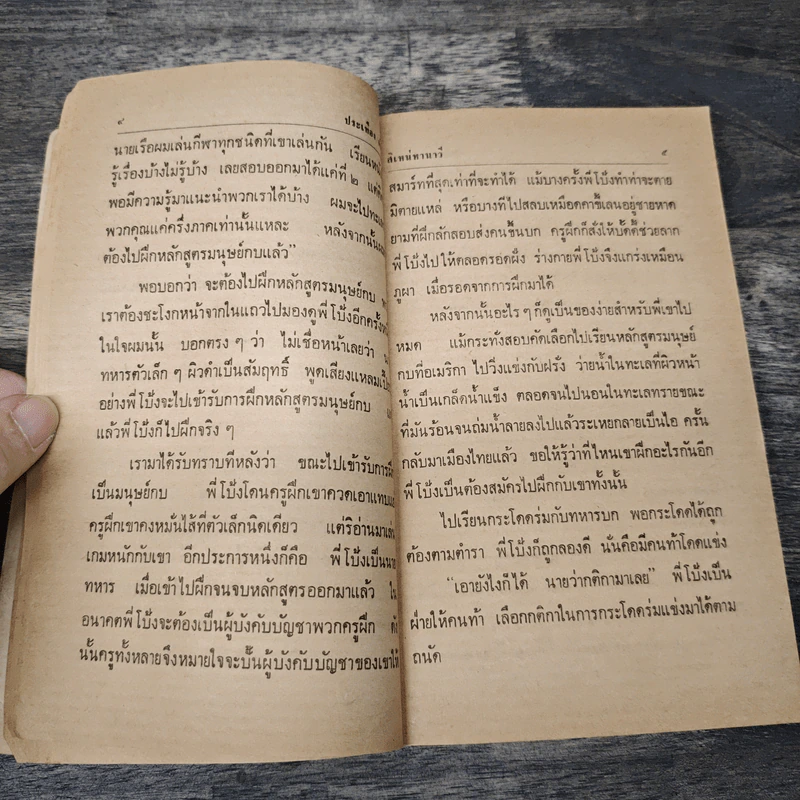 ๘ ประเทือง
นายเรือผมเล่นกีฬาทุกชนิดที่เขาเล่นกัน เรียนหนั
รู้เรื่องบ้างไม่รู้บ้าง เลยสอบออกมาได้แค่ที่ ๒ แต่
พอมีความรู้มาแนะนำพวกเราได้บ้าง ผมจะไปทะเล
พวกคุณแค่ครึ่งภาคเท่านั้นแหละ หลังจากนั้นผม
ต้องไปฝึกหลักสูตรมนุษย์กบแล้ว”
พอบอกว่า จะต้องไปฝึกหลักสูตรมนุษย์กบ
เราต้องชะโงกหน้าจากในแถวไปมองดูพี่โป้งอีกครั้งห
ในใจผมนั้น บอกตรง ๆ ว่า ไม่เชื่อหน้าเลยว่า
ทหารตัวเล็ก ๆ ผิวดำเป็นสัมฤทธิ์ พูดเสียงแหลมเปี๊ย
อย่างพี่โป้งจะไปเข้ารับการฝึกหลักสูตรมนุษย์กบ
แล้วพี่โป้งก็ไปฝึกจริง ๆ
เรามาได้รับทราบทีหลังว่า ขณะไปเข้ารับการฝึ
เป็นมนุษย์กบ พี่โป้งโดนครูฝึกเขากวดเอาแทบแ
ครูฝึกเขาคงหมั่นไส้ที่ตัวเล็กนิดเดียว แต่ริอ่านมาเล่น
เกมหนักกับเขา อีกประการหนึ่งก็คือ พี่โป้งเป็นนาย
ทหาร เมื่อเข้าไปฝึกจนจบหลักสูตรออกมาแล้ว ใน
อนาคตพี่โป้งจะต้องเป็นผู้บังคับบัญชาพวกครูฝึก ดั
นั้นครูทั้งหลายจึงหมายใจจะปั้นผู้บังคับบัญชาของเขาให้
ลิเทน่ทานาวี ๙
สมาร์ทที่สุดเท่าที่จะทำได้ แม้บางครั้งพี่โป้งทำท่าจะตาย
มิตายแหล่ หรือบางทีไปสลบเหมือดคาขี้เลนอยู่ชายหาด
ยามที่ฝึกลักลอบส่งคนขึ้นบก ครูฝึกก็สั่งให้บั๊ดดี้ช่วยลาก
พี่โป้งไปให้ตลอดรอดฝั่ง ร่างกายพี่โป้งจึงแกร่งเหมือน
ภูผา เมื่อรอดจากการฝึกมาได้
หลังจากนั้นอะไร ๆ ก็ดูเป็นของง่ายสำหรับพี่เขาไป
หมด แม้กระทั่งสอบคัดเลือกไปเรียนหลักสูตรมนุษย์
กบที่อเมริกา ไปวิ่งแข่งกับฝรั่ง ว่ายน้ำในทะเลที่ผิวหน้า
น้ำเป็นเกล็ดน้ำแข็ง ตลอดจนไปนอนในทะเลทรายขณะ
ที่มันร้อนจนถ่มน้ำลายลงไปแล้วระเหยกลายเป็นไอ ครั้น
กลับมาเมืองไทยแล้ว ขอให้รู้ว่าที่ไหนเขาฝึกอะไรกันอีก
พี่โป้งเป็นต้องสมัครไปฝึกกับเขาทั้งนั้น
ไปเรียนกระโดดร่มกับทหารบก พอกระโดดได้ถูก
ต้องตามตำรา พี่โป้งก็ถูกลองดี นั่นคือมีคนท้าโดดแข่ง
“เอายังไงก็ได้ นายว่ากติกามาเลย” พี่โป้งเป็น
ฝ่ายให้คนท้า เลือกกติกาในการกระโดดร่มแข่งมาได้ตาม
ถนัด